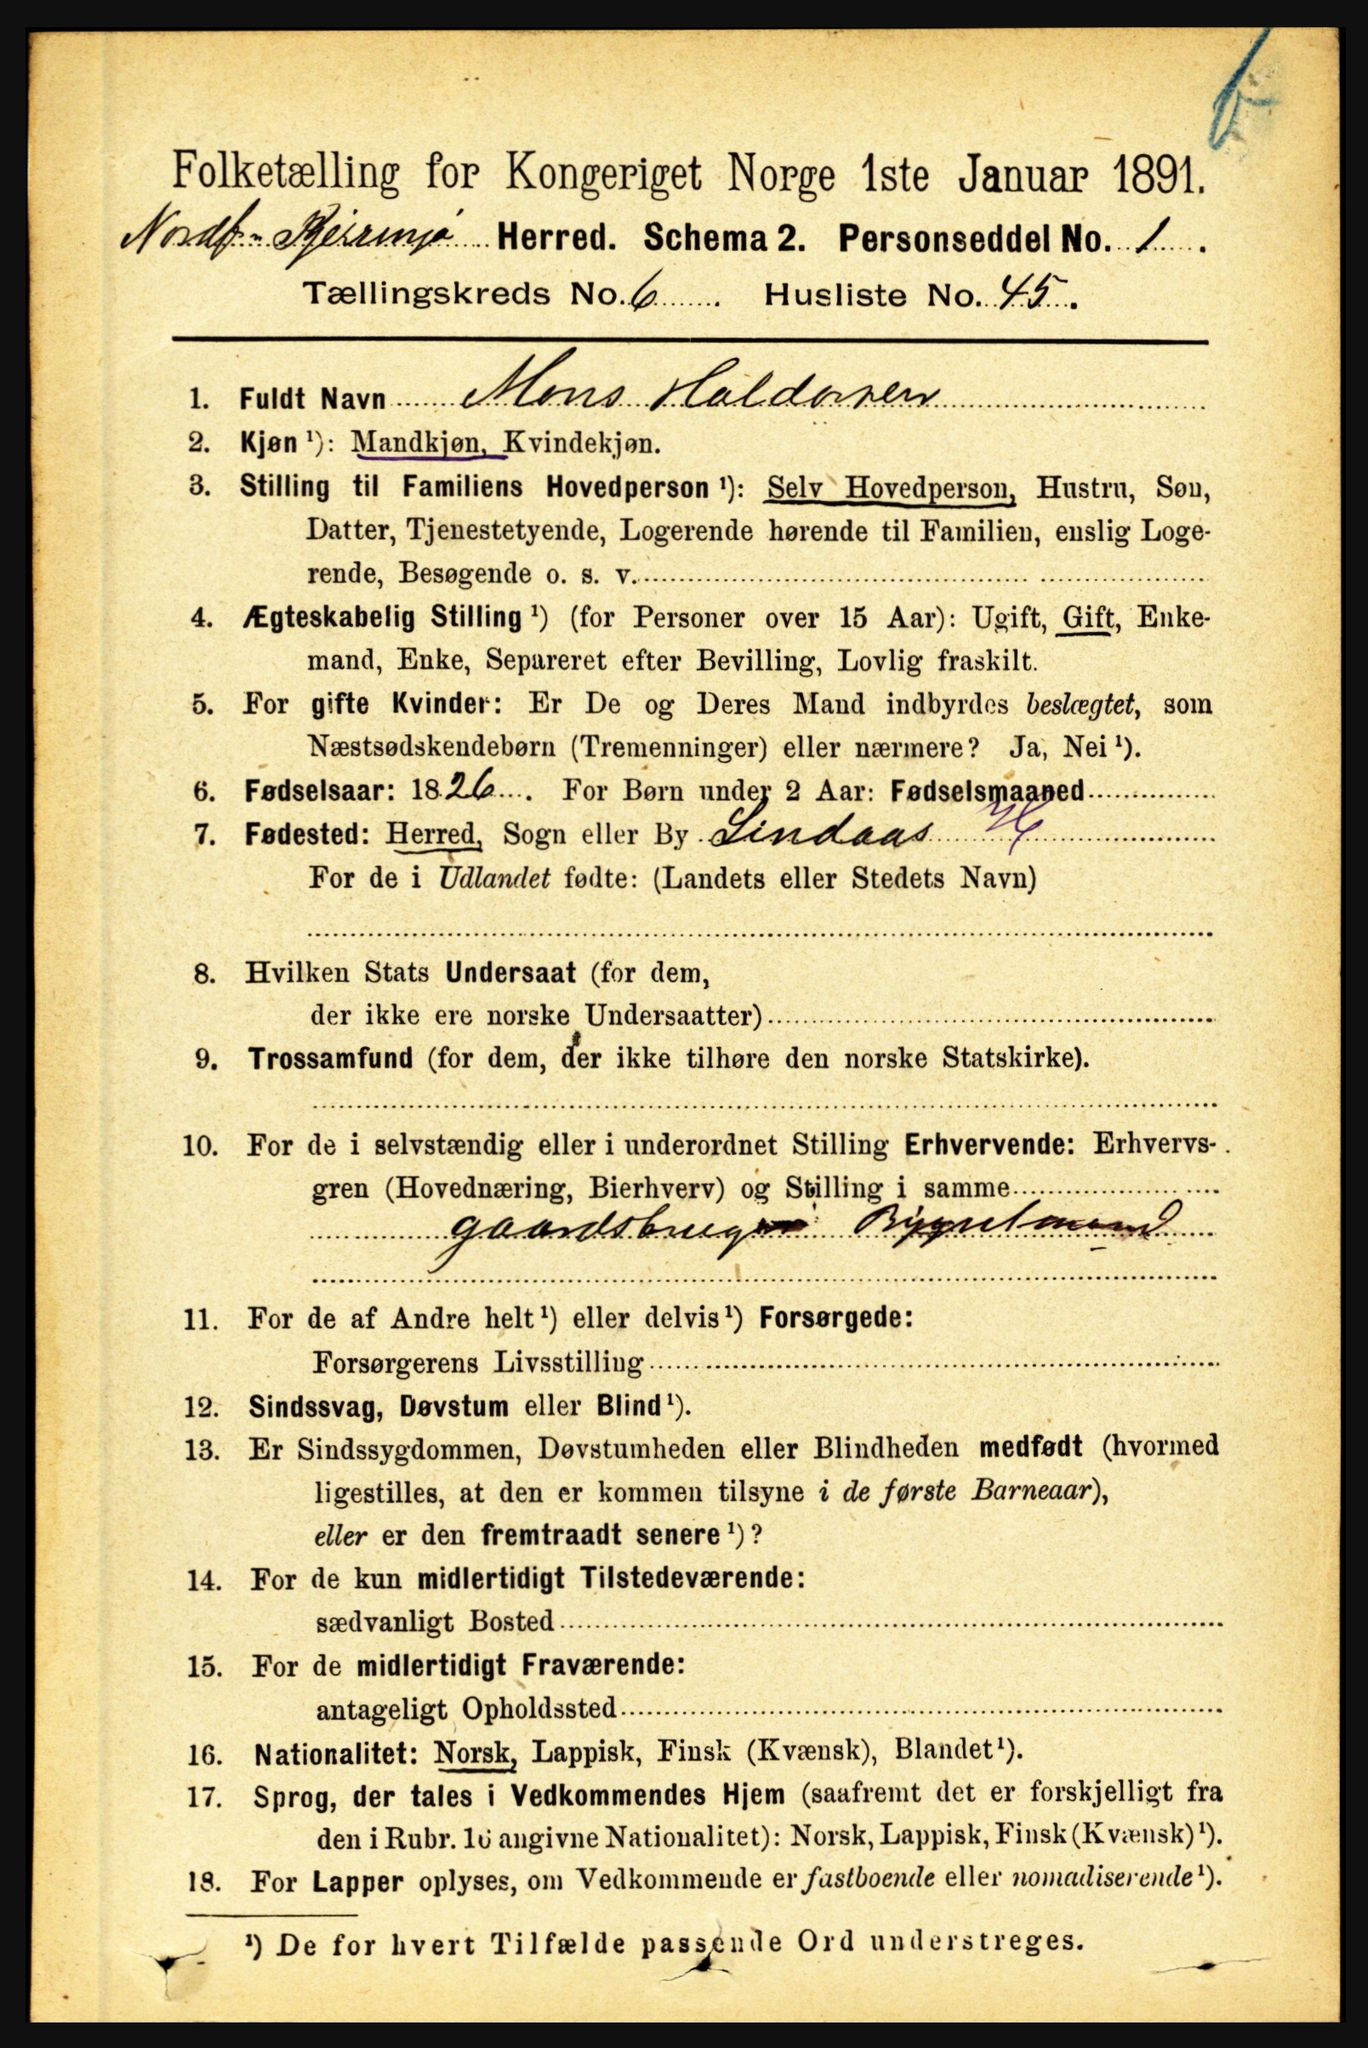 Folketælling for Kongeriget Norge 1ste Januar 1891.
Herred. Schema 2. Personseddel No. 1.
Tællingskreds No. 6. Husliste No. 45.
1. Fuldt Navn Mons Haldorsen
2. Kjøn ¹): Mandkjøn, Kvindekjøn.
3. Stilling til Familiens Hovedperson ¹): Selv Hovedperson, Hustru, Søn,
Datter, Tjenestetyende, Logerende hørende til Familien, enslig Loge-
rende, Besøgende o. s. v.
4. Ægteskabelig Stilling ¹) (for Personer over 15 Aar): Ugift, Gift, Enke-
mand, Enke, Separeret efter Bevilling, Lovlig fraskilt.
5. For gifte Kvinder: Er De og Deres Mand indbyrdes beslægtet, som
Næstsødskendebørn (Tremenninger) eller nærmere? Ja, Nei ¹).
6. Fødselsaar: 1826. For Børn under 2 Aar: Fødselsmaaned
7. Fødested: Herred, Sogn eller By Lindaas H
For de i Udlandet fødte: (Landets eller Stedets Navn)
8. Hvilken Stats Undersaat (for dem,
der ikke ere norske Undersaatter)
9. Trossamfund (for dem, der ikke tilhøre den norske Statskirke).
10. For de i selvstændig eller i underordnet Stilling Erhvervende: Erhvervs-
gren (Hovednæring, Bierhverv) og Stilling i samme
11. For de af Andre helt ¹) eller delvis ¹) Forsørgede:
Forsørgerens Livsstilling
12. Sindssvag, Døvstum eller Blind ¹).
13. Er Sindssygdommen, Døvstumheden eller Blindheden medfødt (hvormed
ligestilles, at den er kommen tilsyne i de første Barneaar),
eller er den fremtraadt senere ¹)?
14. For de kun midlertidigt Tilstedeværende:
sædvanligt Bosted
15. For de midlertidigt Fraværende:
antageligt Opholdssted
16. Nationalitet: Norsk, Lappisk, Finsk (Kvænsk), Blandet ¹).
17. Sprog, der tales i Vedkommendes Hjem (saafremt det er forskjelligt fra
den i Rubr. 16 angivne Nationalitet): Norsk, Lappisk, Finsk (Kvænsk) ¹).
18. For Lapper oplyses, om Vedkommende er fastboende eller nomadiserende ¹).
¹) De for hvert Tilfælde passende Ord understreges.